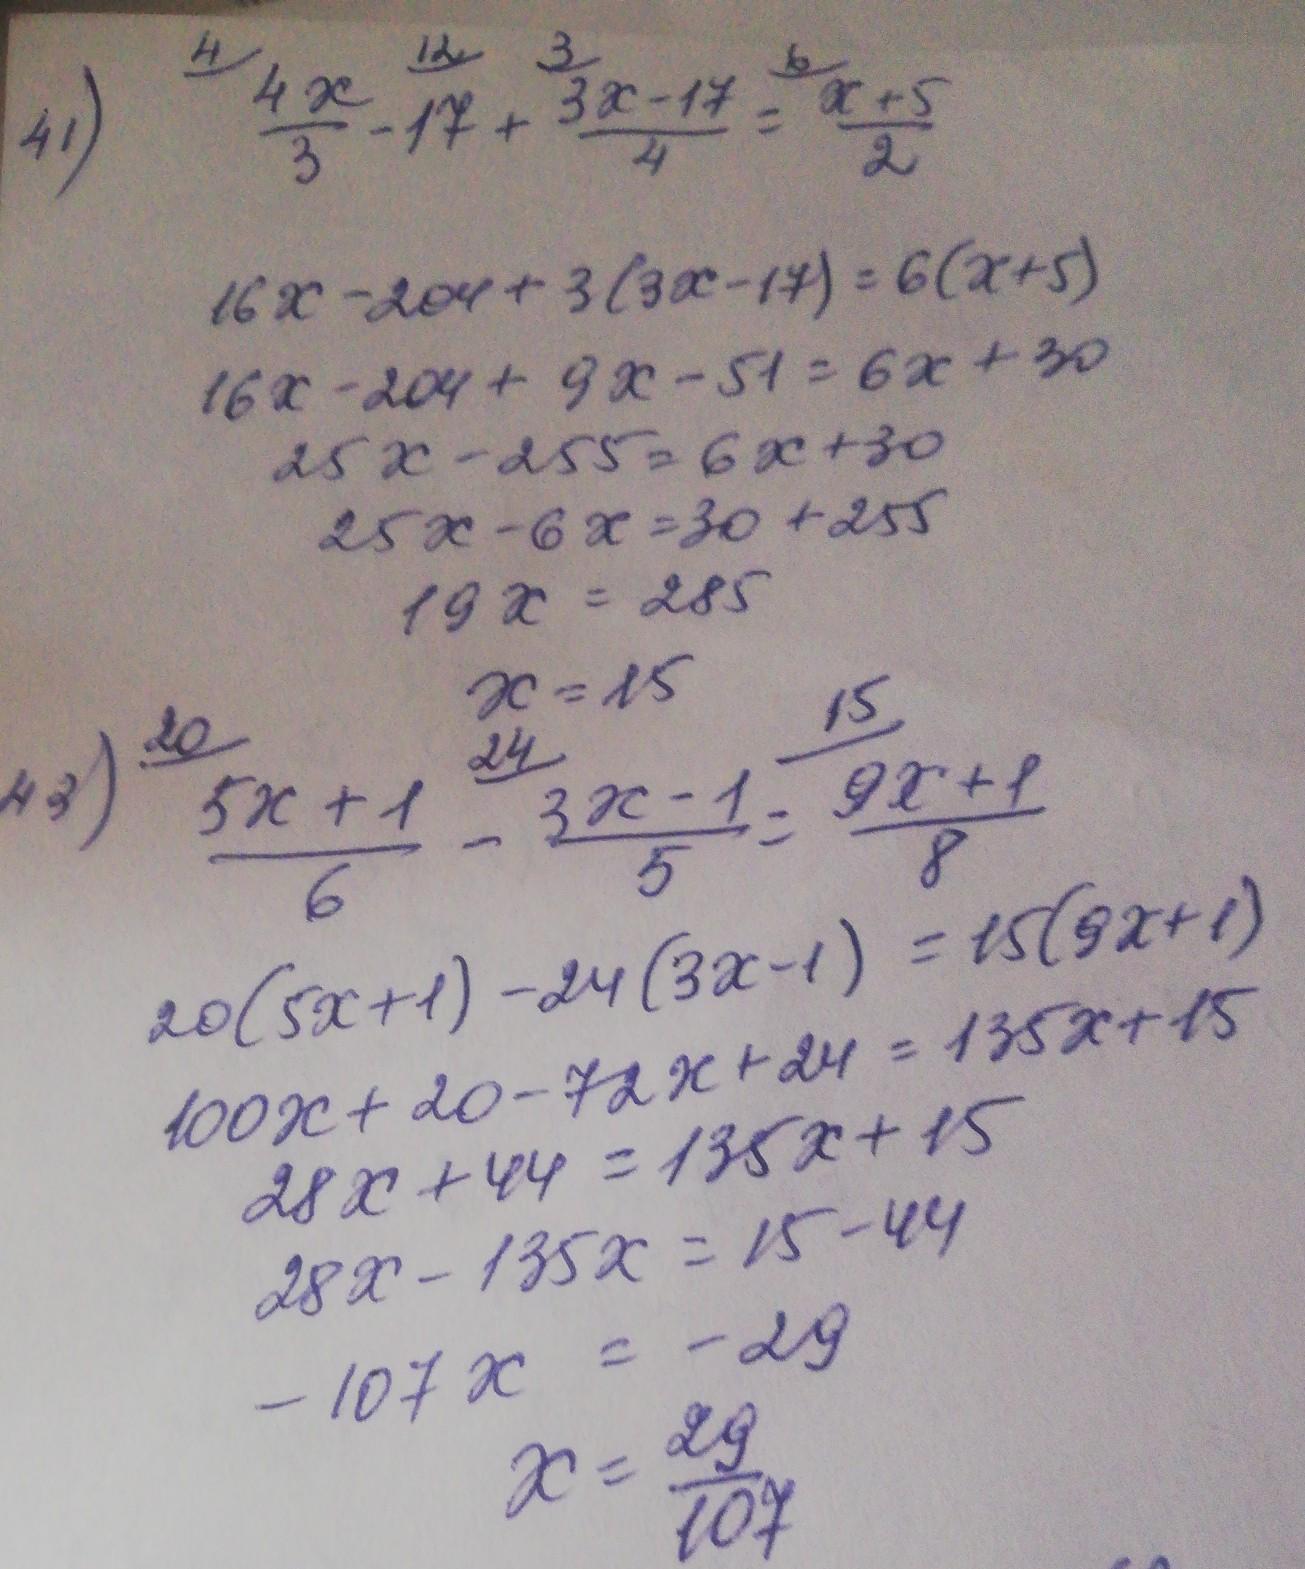 41) 4/ 4x/3 - 12/ 17 + 3/ (3x-17)/4 = 6/ (x+5)/2
16x-204+3(3x-17)=6(x+5)
16x-204+9x-51=6x+30
25x-255=6x+30
25x-6x=30+255
19x=285
x=15
43) 20/ (5x+1)/6 - 24/ (3x-1)/5 = 15/ (9x+1)/8
20(5x+1)-24(3x-1)=15(9x+1)
100x+20-72x+24=135x+15
28x+44=135x+15
28x-135x=15-44
-107x=-29
x=29/107